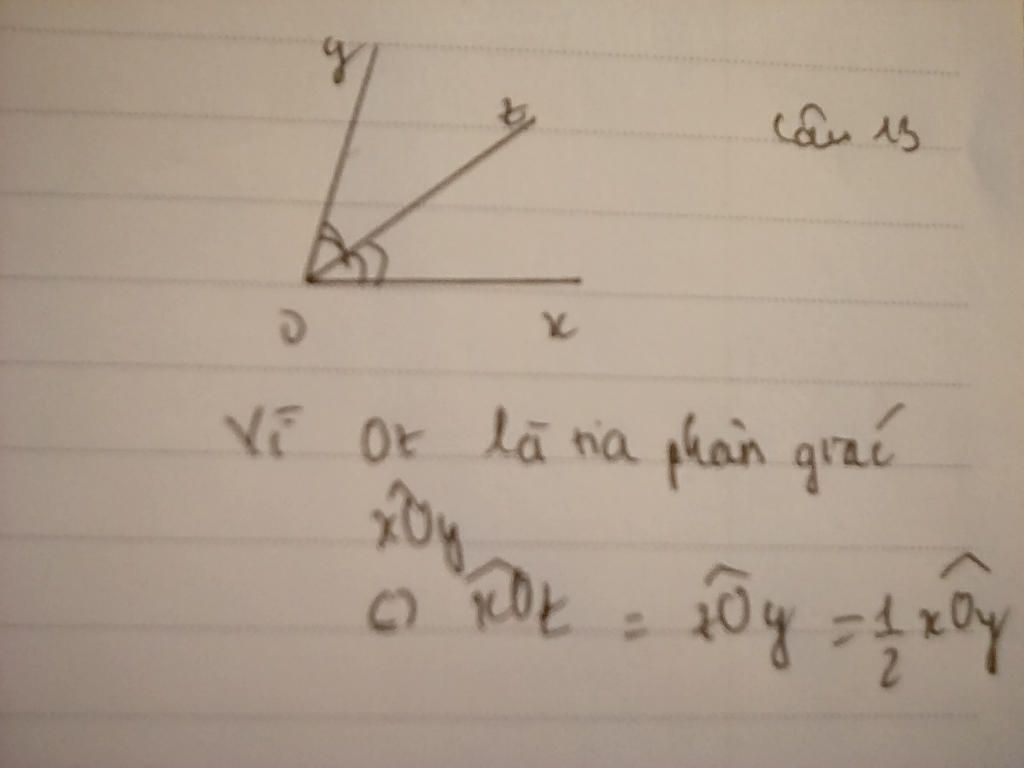 y
t
Câu 13
O x
Vì Ot là tia phân giác
xÔy
<=> xÔt = tÔy = 1/2 xÔy